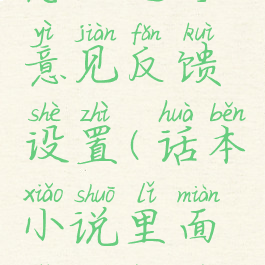 yì jiàn fǎn kuì
意见反馈
shè zhì huà běn
设置(话本
xiǎo shuō lǐ miàn
小说里面